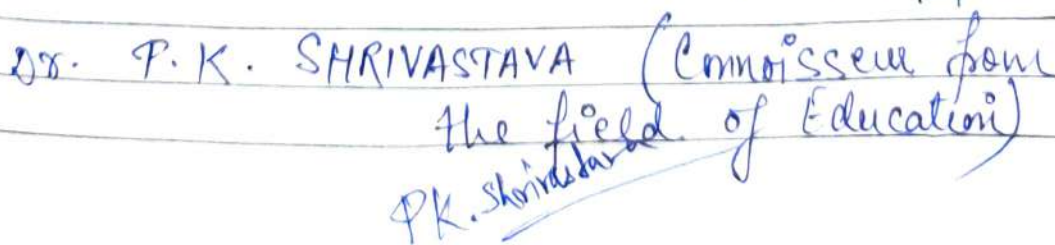 Dr. P.K. SHRIVASTAVA (Connoisseur from
the field of Education)
PK. Shrivastava